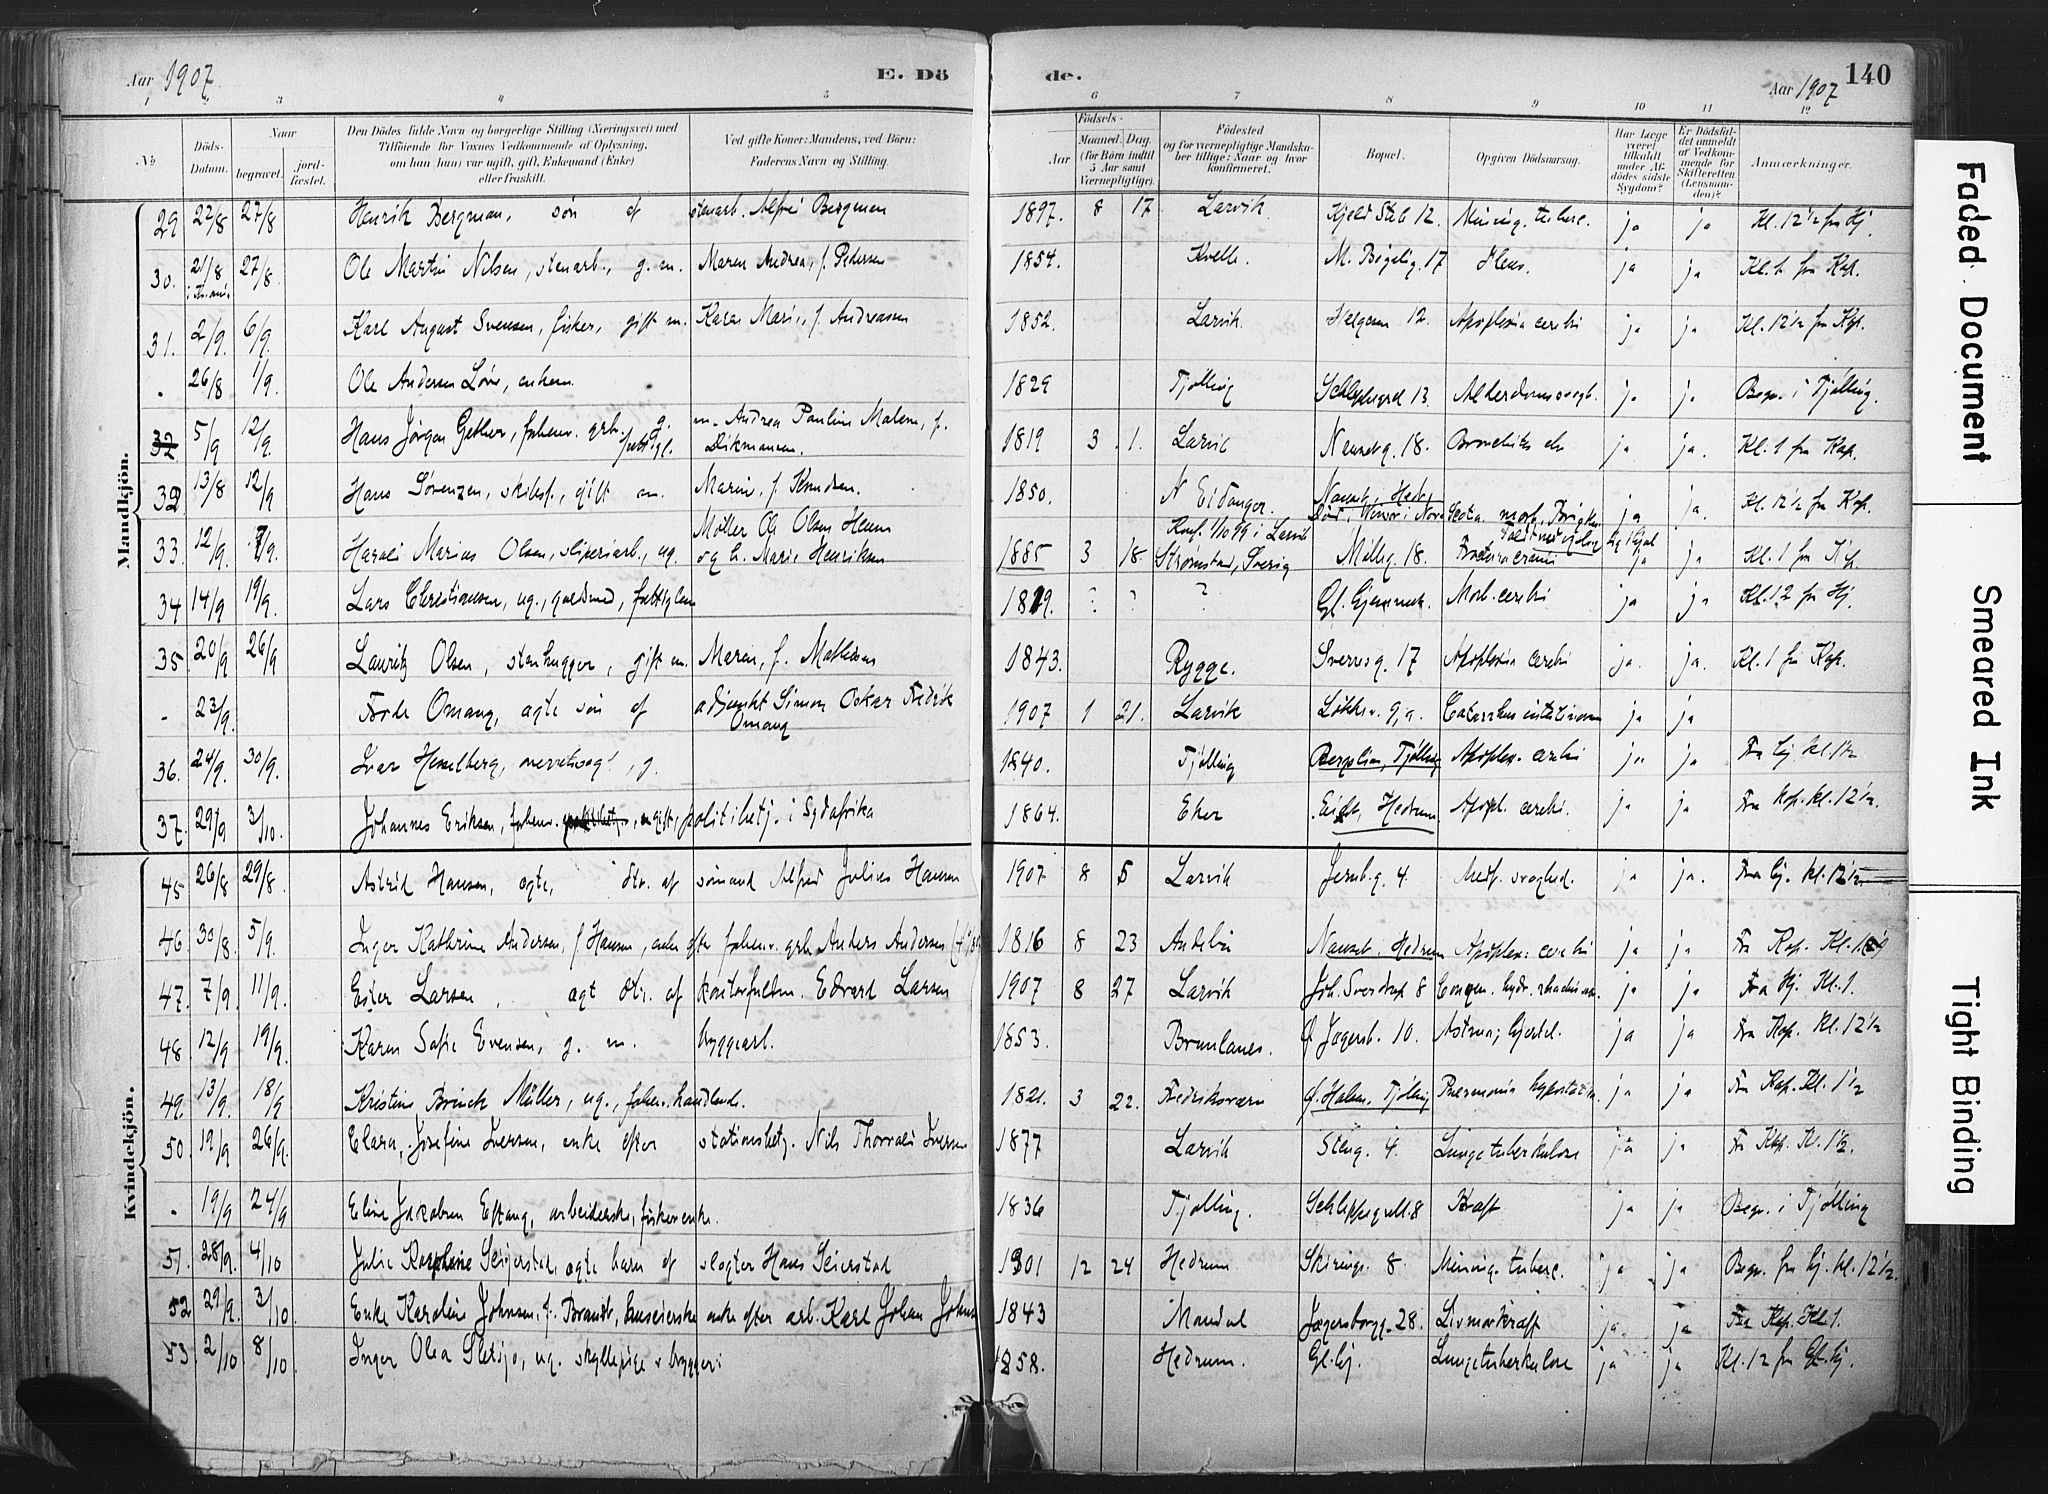 Aar 1907.
E. Dö de.
Aar 1907
140
3 4 5 6 7 8 9 10 11 12
No
Döds-Datum.
Naar
begravet.
jord-fæstet.
Den Dödes fulde Navn og borgerlige Stilling (Næringsvei) med
Tilföiende for Voxnes Vedkommende af Oplysning,
om han (hun) var ugift, gift, Enkemand (Enke)
eller fraskilt.
Ved gifte Koner: Mandens, ved Börn:
Faderens Navn og Stilling.
Födsels-
Aar
Maaned. Dag.
(for Börn indtil 5 Aar samt Værnepligtige).
Födested
og for værnepligtige Mandska-
ber tillige: Naar og hvor
konfirmeret.
Bopæl.
Opgiven Dödsaarsag.
Har Læge været tilkaldt under Af-dödes sidste Sygdom?
Er Dödsfal-det anmeldt af Vedkom-mende for Skifteretten (Lensman-den)?
Anmærkninger.
Mandkjön.
29 22/8 27/8 Henrik Bergman, sön af stenarb. Alfred Bergman 1897. 8 17 Larvik. Kjeld Stub 12. Mening. tuberc. ja ja Kl. 12½ fra Hj.
30. 21/8 27/8 Ole Martin Nilsen, stenarb., g. m. Maren Andrea, f. Pedersen 1854. Kvelle. M. Bøgelig. 17 Ileus. ja ja Kl. 1 fra Kap.
31. 2/9. 6/9. Karl August Svensen, fisker, gift m. Karen Marie, f. Andreassen 1852. Larvik. Helgesen 12. Apoplexia cerebri ja ja Kl. 12½ fra Kap.
. 26/8 1/9. Ole Andersen Löve, enkem. 1829 Tjølling 13. Alderdomssvagh. ja ja Begr. i Tjølling.
32 5/9 12/9. Hans Jörgen Gether, forhenv. grb. g. m. Andrea Pauline Malene, f.
fattigl. Dikmansen. 1819 3 1. Larvik 18. Bronchitis ja ja. Kl. 1 fra Kap.
32 13/8 12/9 Hans Sørenzen, skibsf., gift m. Marie, f. Knudsen. 1850. N Eidanger. Nanset, Hedr. ja ja. Kl. 12½ fra Kap.
33. 12/9. Harald Marius Olsen, sliperiarb., ug. Møller Ole Olsen
og h. Marie Henriksen 1885 3 18 Konf. 1/10 99 i Larvik
Strømstad, Sverig Mölleg. 18. Fractura cranii ja ja Kl. 1 fra
34 14/9 19/9. Lars Christiansen, ug., gaardmd, fattiglem 1819. ? ? ? Gl. Morb. cerebri ja ja Kl. 12 fra Hj.
35 20/9 26/9 Lauritz Olsen, stenhugger, gift m. Maren, f. Mathisen 1843. Rygge. Sverresg. 17 Apoplexia cerebri ja. ja. Kl. 1 fra Kap.
. 23/9. Frode Omang, ægte sön af adjunkt Simon Oskar Fredrik
Omang 1907 1 21. Larvik Løkke Catarrhus intestinorum ja ja
36. 24/9. 30/9. Ivar Hesselberg, g. 1840. Tjølling Bergslien, Tjølling Apoplex. cerebri ja ja Fra Hj. kl. 1½
37. 29/9 3/10. Johannes Eriksen, forhenv. ugift, politibetj. i Sydafrika 1864. Eker Hedrum Apopl. cerebri ja ja Fra Kap. kl. 12½.
Kvindekjön.
45 26/8 29/8. Astrid Hansen, ægte, dtr. af sömand Alfred Julius Hansen 1907 8 5 Larvik Jernb.g. 4. Medf. svaghed. ja ja. Fra Hj. kl. 12½
46. 30/8. 5/9. Inger Kathrine Andersen, f. Hansen, enke efter forhenv. grb. Anders Andersen 1816 8 23 Andebu Nanset, Hedrum Apoplex. cerebri ja ja Fra Kap. Kl. 1
47. 7/9. 11/9. Ester Larsen, ægt dtr. af kontorfuldm. Edvard Larsen 1907 8 27 Larvik Joh. Sverdrup 8 ja ja Fra Hj. Kl. 1.
48 12/9 19/9. Karen Sofie Evensen, g. m. byggearb. 1853. Brunlanes. Ø Jegersb. 10. Astma; hjertel. ja ja Fra Kap. Kl. 12½
49. 13/9. 18/9 Kristine Brinch Müller, ug., forhen. handlende. 1821. 3 22. Fredriksværn Ø. Halsen, Tjølling Pneumonia hypostatica. ja ja Fra Kap. Kl. 1½
50. 19/9 26/9. Clara Josefine Iversen, enke efter stationsbetj. Nils Thorvald Iversen 1877 Larvik Steng. 4. Lungetuberkulose ja ja Fra Kap. Kl. 1½.
. 19/9 24/9 Eline Jakobsen Eftang, arbeiderske, fiskerenke. 1836 Tjølling. 8 Kræft ja ja Begr. i Tjølling
51. 28/9. 4/10 Julie Seierstad, ægte barn af slagter Hans Seierstad 1901 12 24 Hedrum Skirings. 8. Mening. tuberc. ja ja Begr. fra Hj. kl. 12½.
52 29/9. 3/10 Enke Karoline Johnsen, f. Brandt, huseierske enke efter arb. Karl Johan Johnsen 1843 Mandal Jegersborgg. 28. Livmorkræft ja. ja Fra Kap. Kl. 1.
53. 2/10 8/10 Inger Olea ug. 1858. Hedrum. Gl. hj. Lungetuberkulose ja ja Kl. 12 fra Gl. hj.
Faded Document
Smeared Ink
Tight Binding